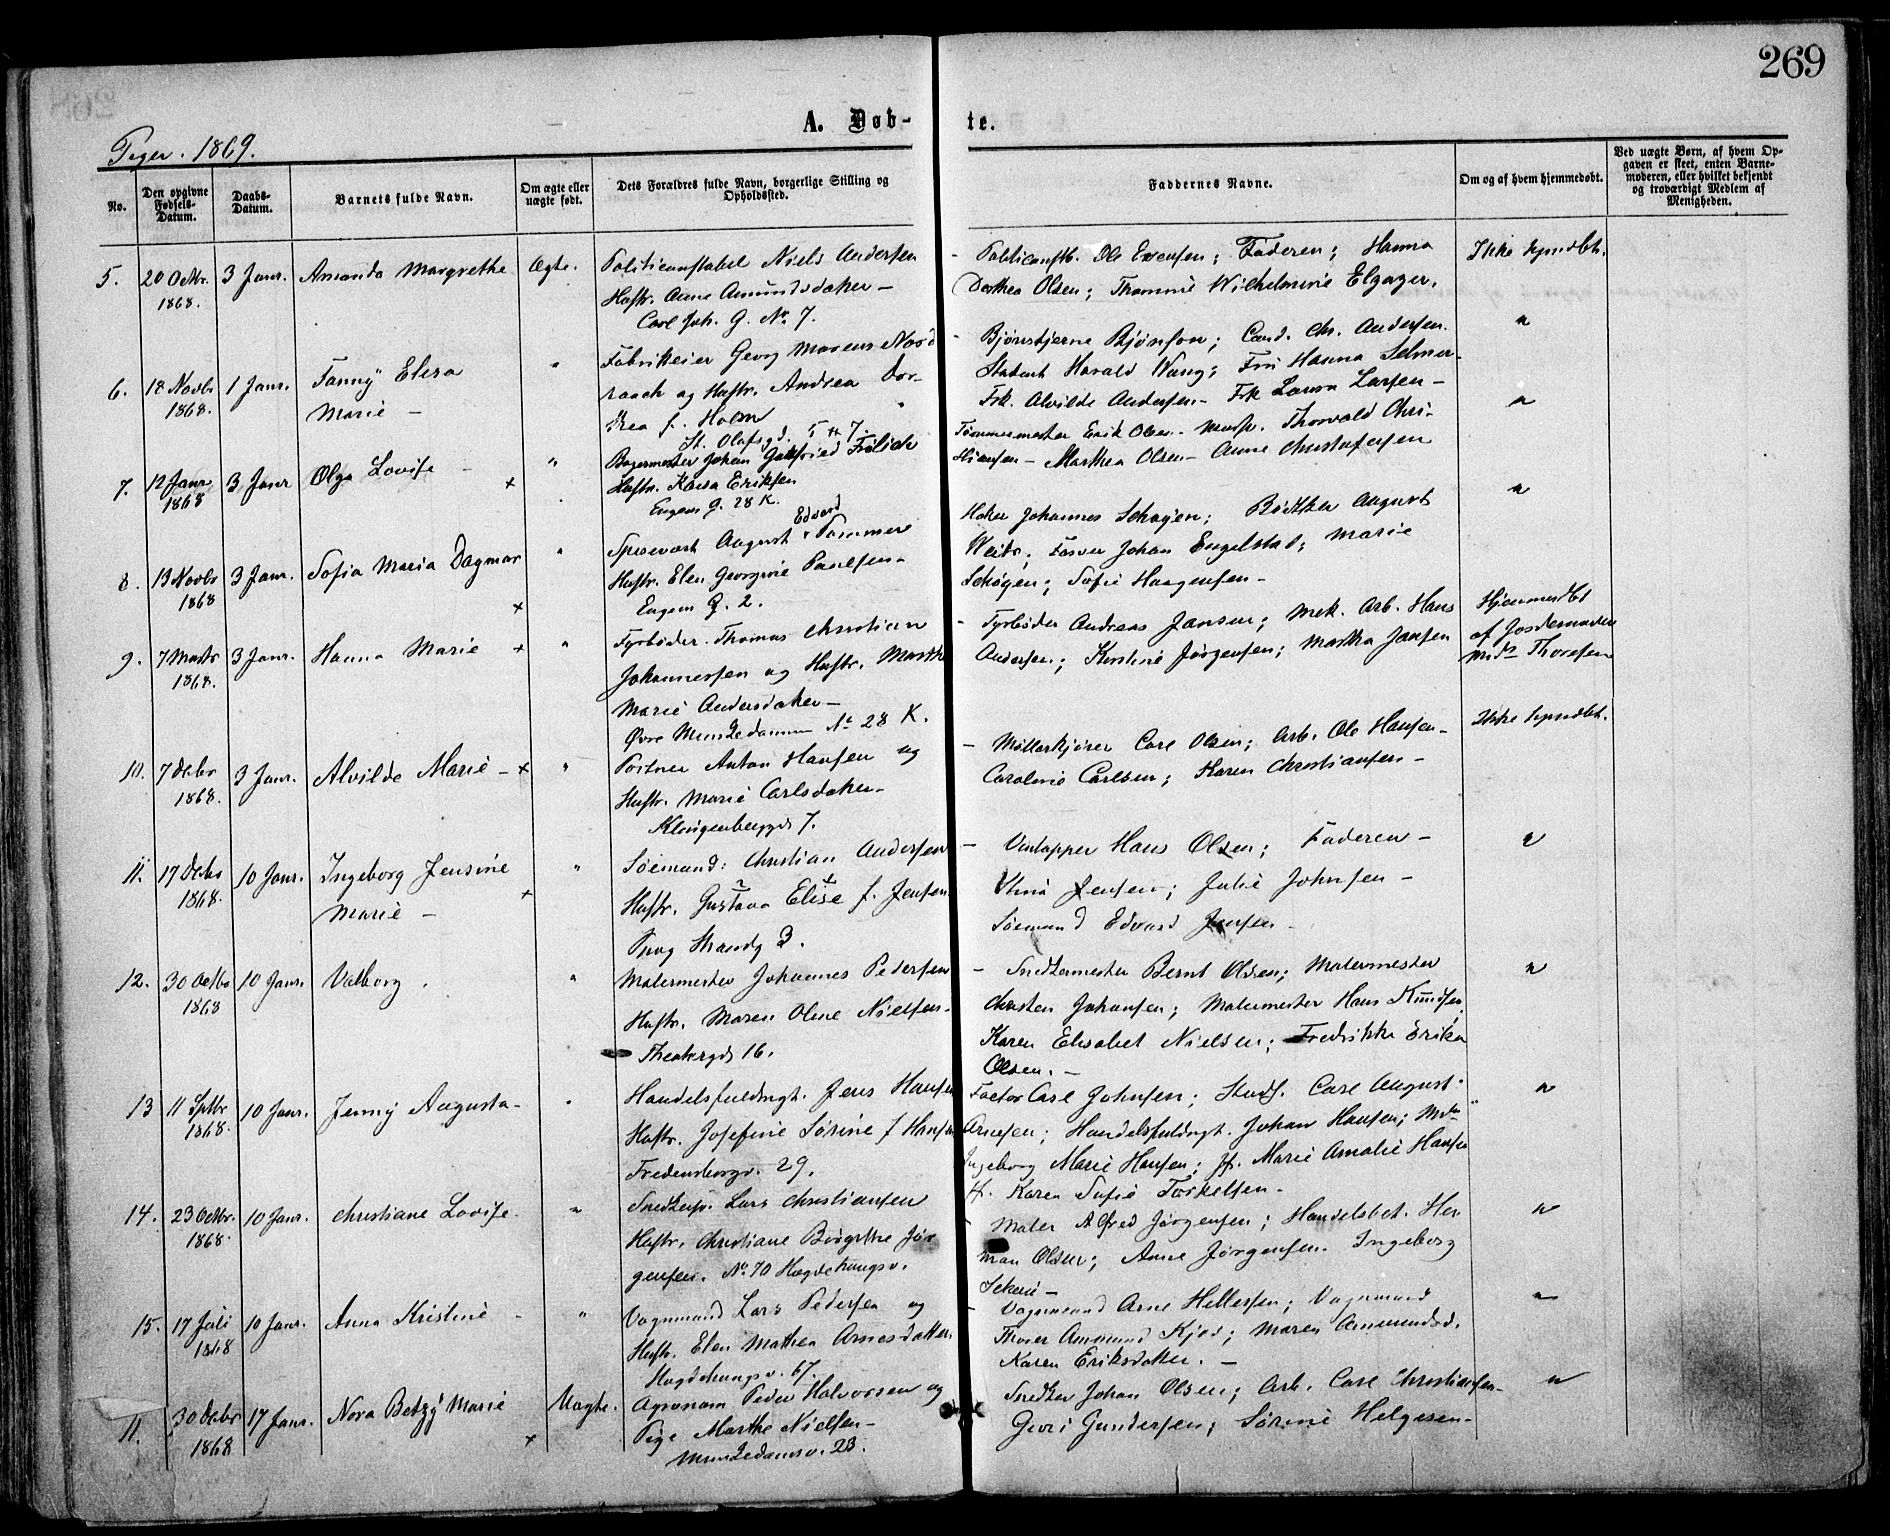 269
A. Døb- te.
Piger. 1869.
No.
Den opgivne Fødsels-Datum.
Daabs-Datum.
Barnets fulde Navn.
Om ægte eller uægte født.
Dets Forældres fulde Navn, borgerlige Stilling og Opholdssted.
Faddernes Navne.
Om og af hvem hjemmedøbt.
Ved uægte Børn, af hvem Opgaven er skeet, enten Barnemoderen, eller hvilket bekjendt og troværdigt Medlem af Menigheden.
5. 20 Octbr. 1868. 3 Janr. Amanda Margrethe Ægte.
Politiconstabel Niels Andersen
Hustr. Anne Amundsdatter -
Carl Joh. G. No. 7.
- Politiconstb. Ole Evensen; Faderen; Hanna
Dorthea Olsen; Thomine Wilhelmine Elgager.
Ikke hjmdbt.
6. 18 Novbr 1868. 1 Janr. Fanny Elisa
Marie - "
Fabrikeier Georg Marcus Nord
raach og Hustr. Andrea Dor-
thea f. Holm
St. Olafsgd. 5 & 7.
- Bjørnstjerne Bjørnson; Cand. Chr. Andersen.
Student Harald Wang; Fru Hanna Selmer -
Frk. Alvilde Andersen - Frk Laura Larsen -
"
7. 12 Janr 1868 3 Janr Olga Lovise - × "
Bagermester Johan Gottfried Frölich
Hustr. Kaisa Eriksen
Eugens G. 28 K.
Tømmermester Erik Olsen - Thorvald Chri-
stiansen - Marthea Olsen - Anne Christofersen
"
8. 13 Novbr 1868 3 Janr. Sofia Maria Dagmar × "
Spisevært August Edvard Pommer
Hustr. Elen Georgine Paulsen -
Eugens G. 2.
Høker Johannes Schøjen; Bødtker August
Weide; Farver Johan Engelstad; Marie
Schøgen; Sofie Haagensen -
"
9. 7 1868. 3 Janr. Hanna Marie × "
Fyrbøder Thomas Christian
Johannessen og Hustr. Marthe
Marie Andersdatter -
Øvre Munkedammen No 28 K.
- Fyrbøder Andreas Jansen; Mek. Arb. Hans
Andersen; Kristine Jørgensen; Martha Jansen
Hjemmedbt
af Jordemoder
Thoresen
10. 7 Decbr 1868. 3 Janr. Alvilde Marie - × "
Portner Anton Hansen og
Hustr. Marie Carlsdatter -
Klingenberggd 7.
- Møllerkjører Carl Olsen; Arb. Ole Hansen -
Caroline Carlsen; Karen Christiansen -
Ikke hjmdbt.
11. 17 Decbr 1868. 10 Janr. Ingeborg Jensine
Marie - × "
Sømand: Christian Andersen
Hustr. Gustava Elise f. Jensen
Strandg 3.
- Vintapper Hans Olsen; Faderen -
Stina Jensen; Julie Johnsen -
Sømand Edvard Jensen -
"
12. 30 Octbr 1868 10 Janr. Valborg. "
Malermester Johannes Pedersen
Hustr. Maren Oline Nielsen -
Theatergd 16.
- Snedkermester Bernt Olsen; Malermester
Christen Johansen; Malermester Hans Knudsen;
Karen Elisabet Nielsen; Fredrikke Erika
Olsen. -
"
13 11 Sptbr 1868. 10 Janr. Jenny Augusta - "
Handelsfuldmgt. Jens Hansen
Hustr. Josefine Sørine f Hansen
Fredensborgv. 29.
Factor Carl Johnsen; Stud. Carl August
Arnesen; Handelsfuldmgt. Johan Hansen; Md
Ingeborg Marie Hansen; Jf. Marie Amalie Hansen
Jf. Karen Sofie Torkelsen -
"
14. 23 Octbr. 1868 10 Janr. Christiane Lovise. "
Snedkersv. Lars Christiansen
Hustr. Christiane Birgithe Jør
gensen. No. 70 Hegdehaugsv.
- Maler Alfred Jørgensen; Handelsbet. Her
man Olsen; Anne Jørgensen. Ingeborg
"
15. 17 Juli 1868 10 Janr. Anna Kristine - "
Vognmand Lars Pedersen og
Hustr. Elen Mathea Arnesdatter
Hegdehaugsv. 67.
- Vognmand Arne Hellersen; Vognmand
Thorer Ammund Kjøs; Maren Amundsd.
Karen Eriksdatter. -
"
11. 30 Decbr 1868 17 Janr. Nora Betzy Marie × Uægte.
Agronom Peder Halvorsen og
Pige Marthe Nielsen -
Munkedamsv. 23.
Snedker Johan Olsen; Arb. Carl Christiansen -
Guri Gundersen; Sørine Helgesen -
"